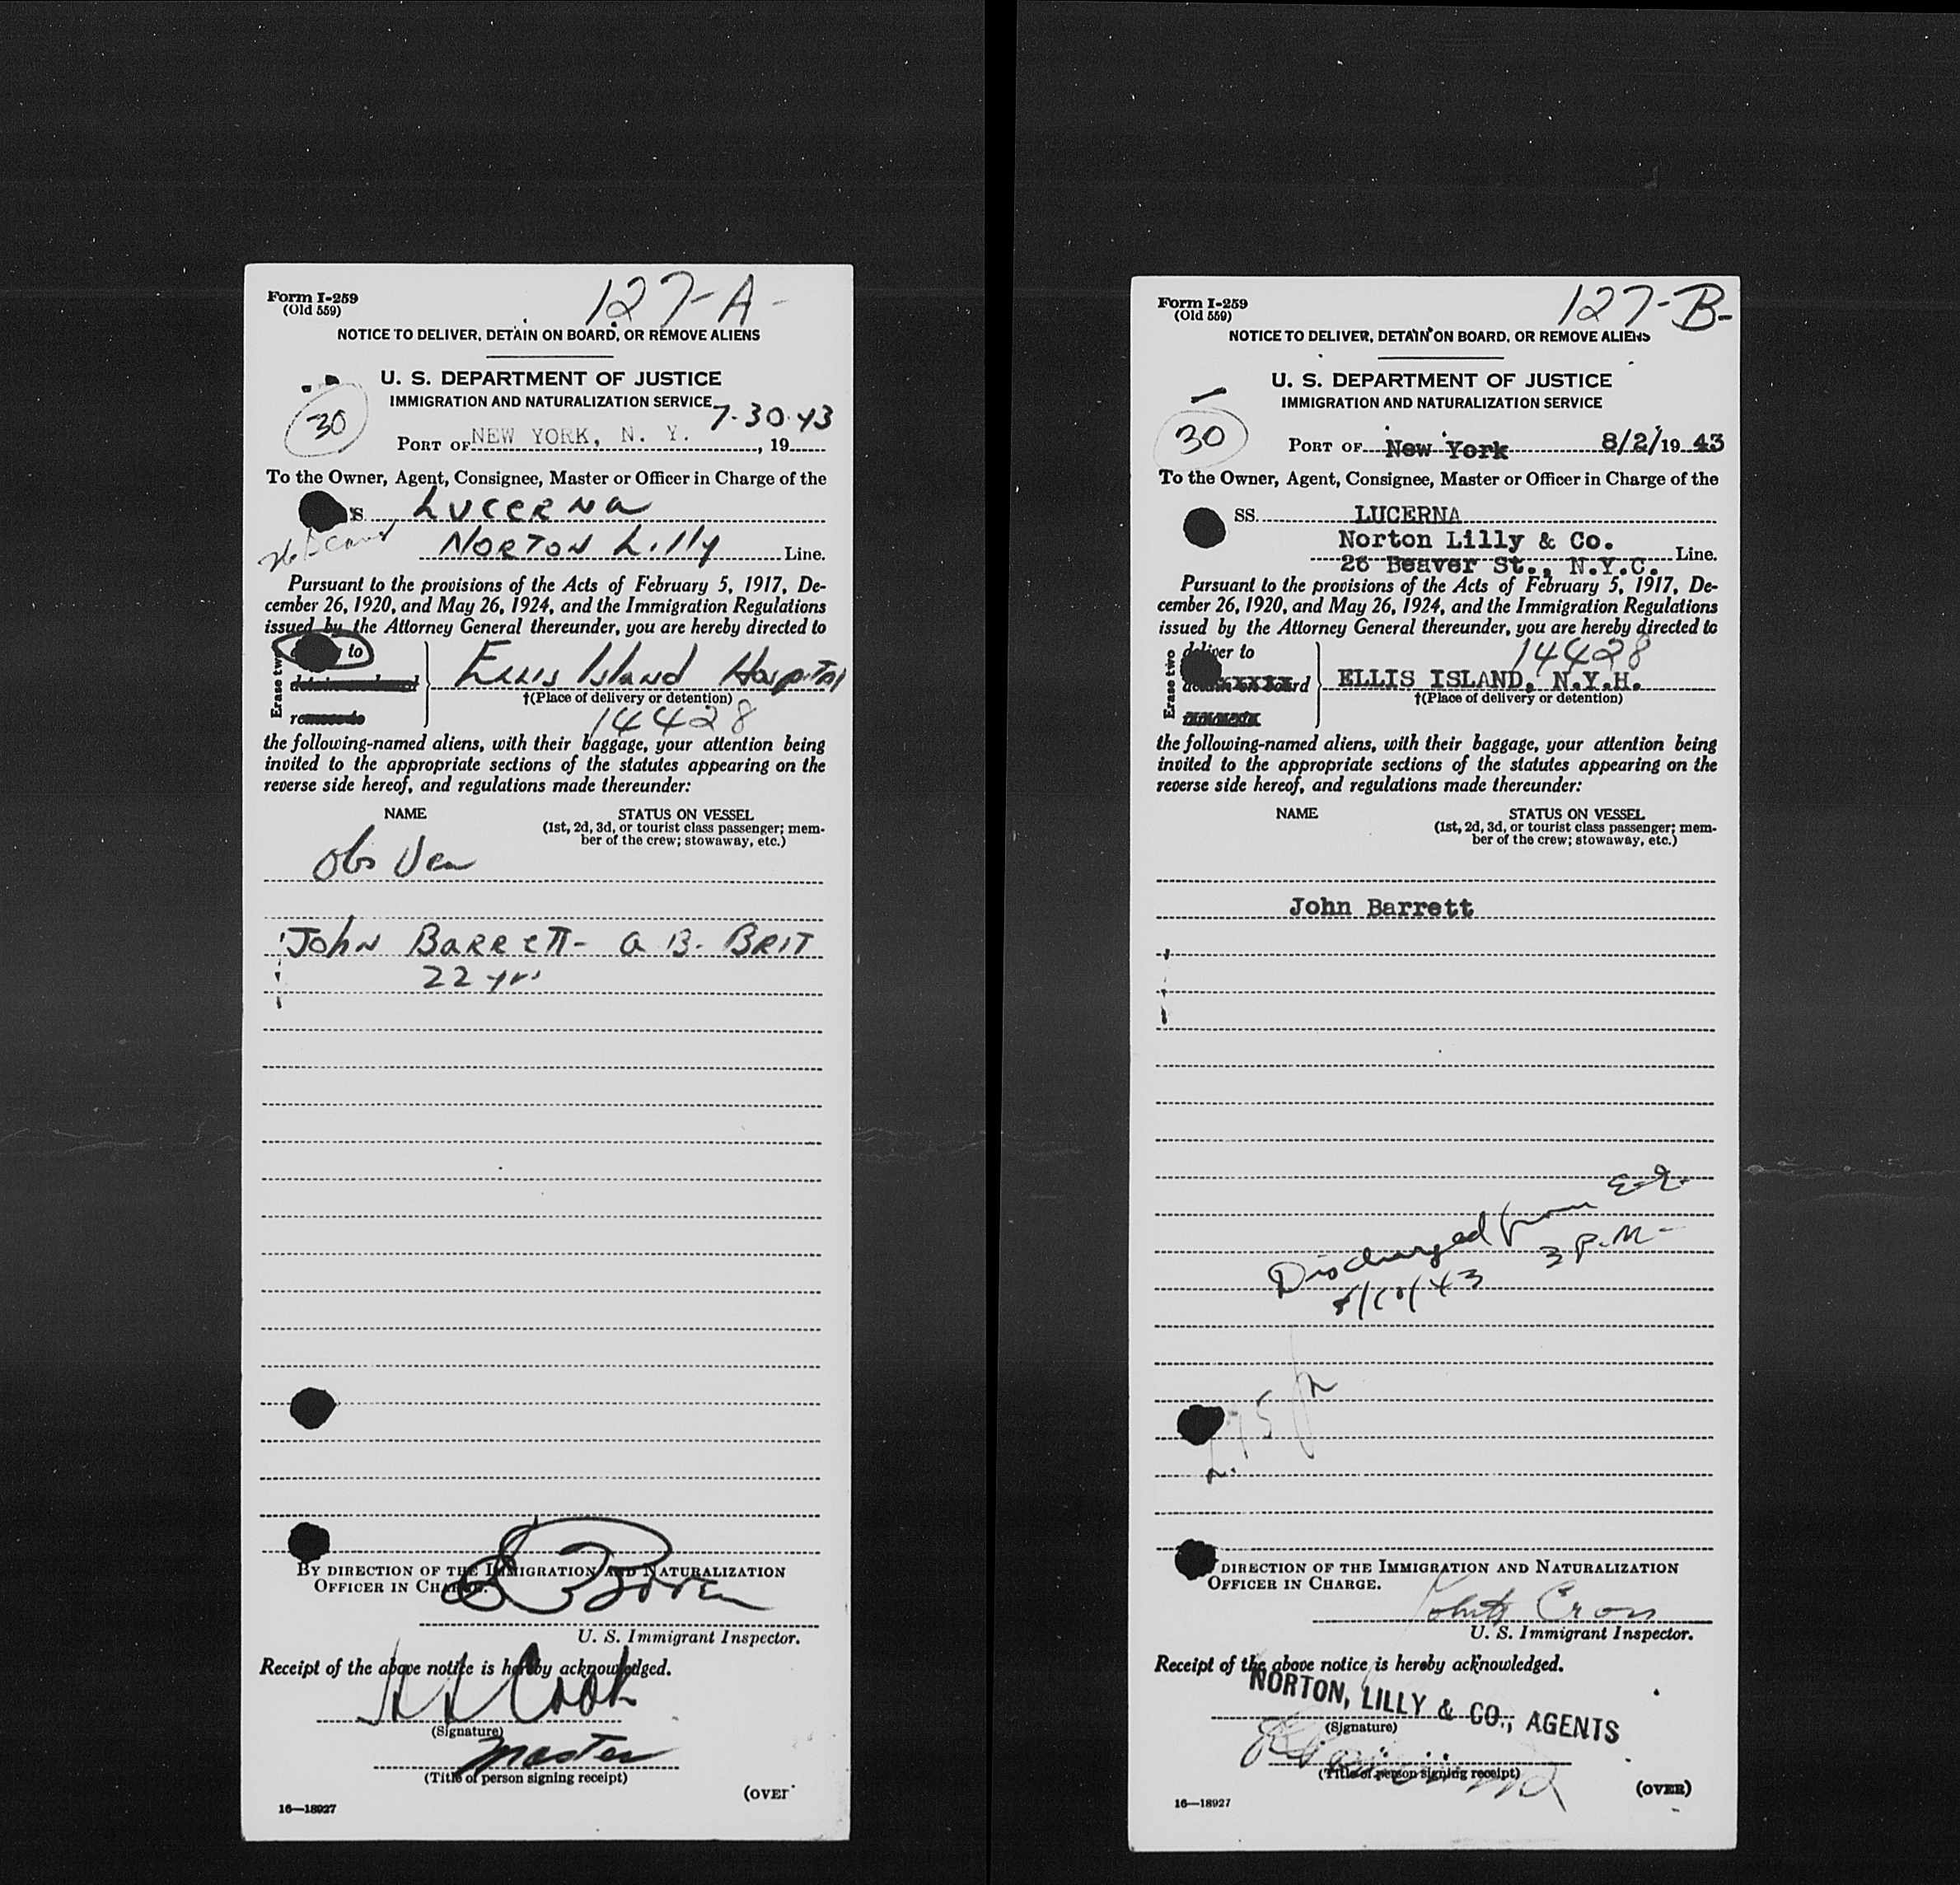 127-A-
Form I-259
(Old 559)
NOTICE TO DELIVER, DETAIN ON BOARD, OR REMOVE ALIENS
U. S. DEPARTMENT OF JUSTICE
IMMIGRATION AND NATURALIZATION SERVICE
30
7-30-43
PORT OF NEW YORK, N. Y. , 19
To the Owner, Agent, Consignee, Master or Officer in Charge of the
LUCERNA
NORTON Lilly Line.
Pursuant to the provisions of the Acts of February 5, 1917, De-
cember 26, 1920, and May 26, 1924, and the Immigration Regulations
issued by the Attorney General thereunder, you are hereby directed to
Erase two
to
ELLIS Island Hospital
†(Place of delivery or detention)
14428
the following-named aliens, with their baggage, your attention being
invited to the appropriate sections of the statutes appearing on the
reverse side hereof, and regulations made thereunder:
NAME STATUS ON VESSEL
(1st, 2d, 3d, or tourist class passenger; mem-
ber of the crew; stowaway, etc.)
Obs Ven
John BARRETT - A B - BRIT
22 yrs
BY DIRECTION OF THE IMMIGRATION AND NATURALIZATION
OFFICER IN CHARGE.
U. S. Immigrant Inspector.
Receipt of the above notice is hereby acknowledged.
Cook
(Signature)
Master
(Title of person signing receipt)
(OVER
16—18927
127-B-
Form I-259
(Old 559)
NOTICE TO DELIVER, DETAIN ON BOARD, OR REMOVE ALIENS
U. S. DEPARTMENT OF JUSTICE
IMMIGRATION AND NATURALIZATION SERVICE
30
PORT OF New York 8/2/19 43
To the Owner, Agent, Consignee, Master or Officer in Charge of the
SS. LUCERNA
Norton Lilly & Co.
26 Beaver St., N.Y.C. Line.
Pursuant to the provisions of the Acts of February 5, 1917, De-
cember 26, 1920, and May 26, 1924, and the Immigration Regulations
issued by the Attorney General thereunder, you are hereby directed to
Erase two
deliver to
14428
ELLIS ISLAND, N.Y.H.
†(Place of delivery or detention)
the following-named aliens, with their baggage, your attention being
invited to the appropriate sections of the statutes appearing on the
reverse side hereof, and regulations made thereunder:
NAME STATUS ON VESSEL
(1st, 2d, 3d, or tourist class passenger; mem-
ber of the crew; stowaway, etc.)
John Barrett
Discharged from E.I.
8/10/43 3 P.M-
DIRECTION OF THE IMMIGRATION AND NATURALIZATION
OFFICER IN CHARGE.
Cross
U. S. Immigrant Inspector.
Receipt of the above notice is hereby acknowledged.
NORTON, LILLY & CO., AGENTS
(Signature)
(Title of person signing receipt)
(OVER)
16—18927